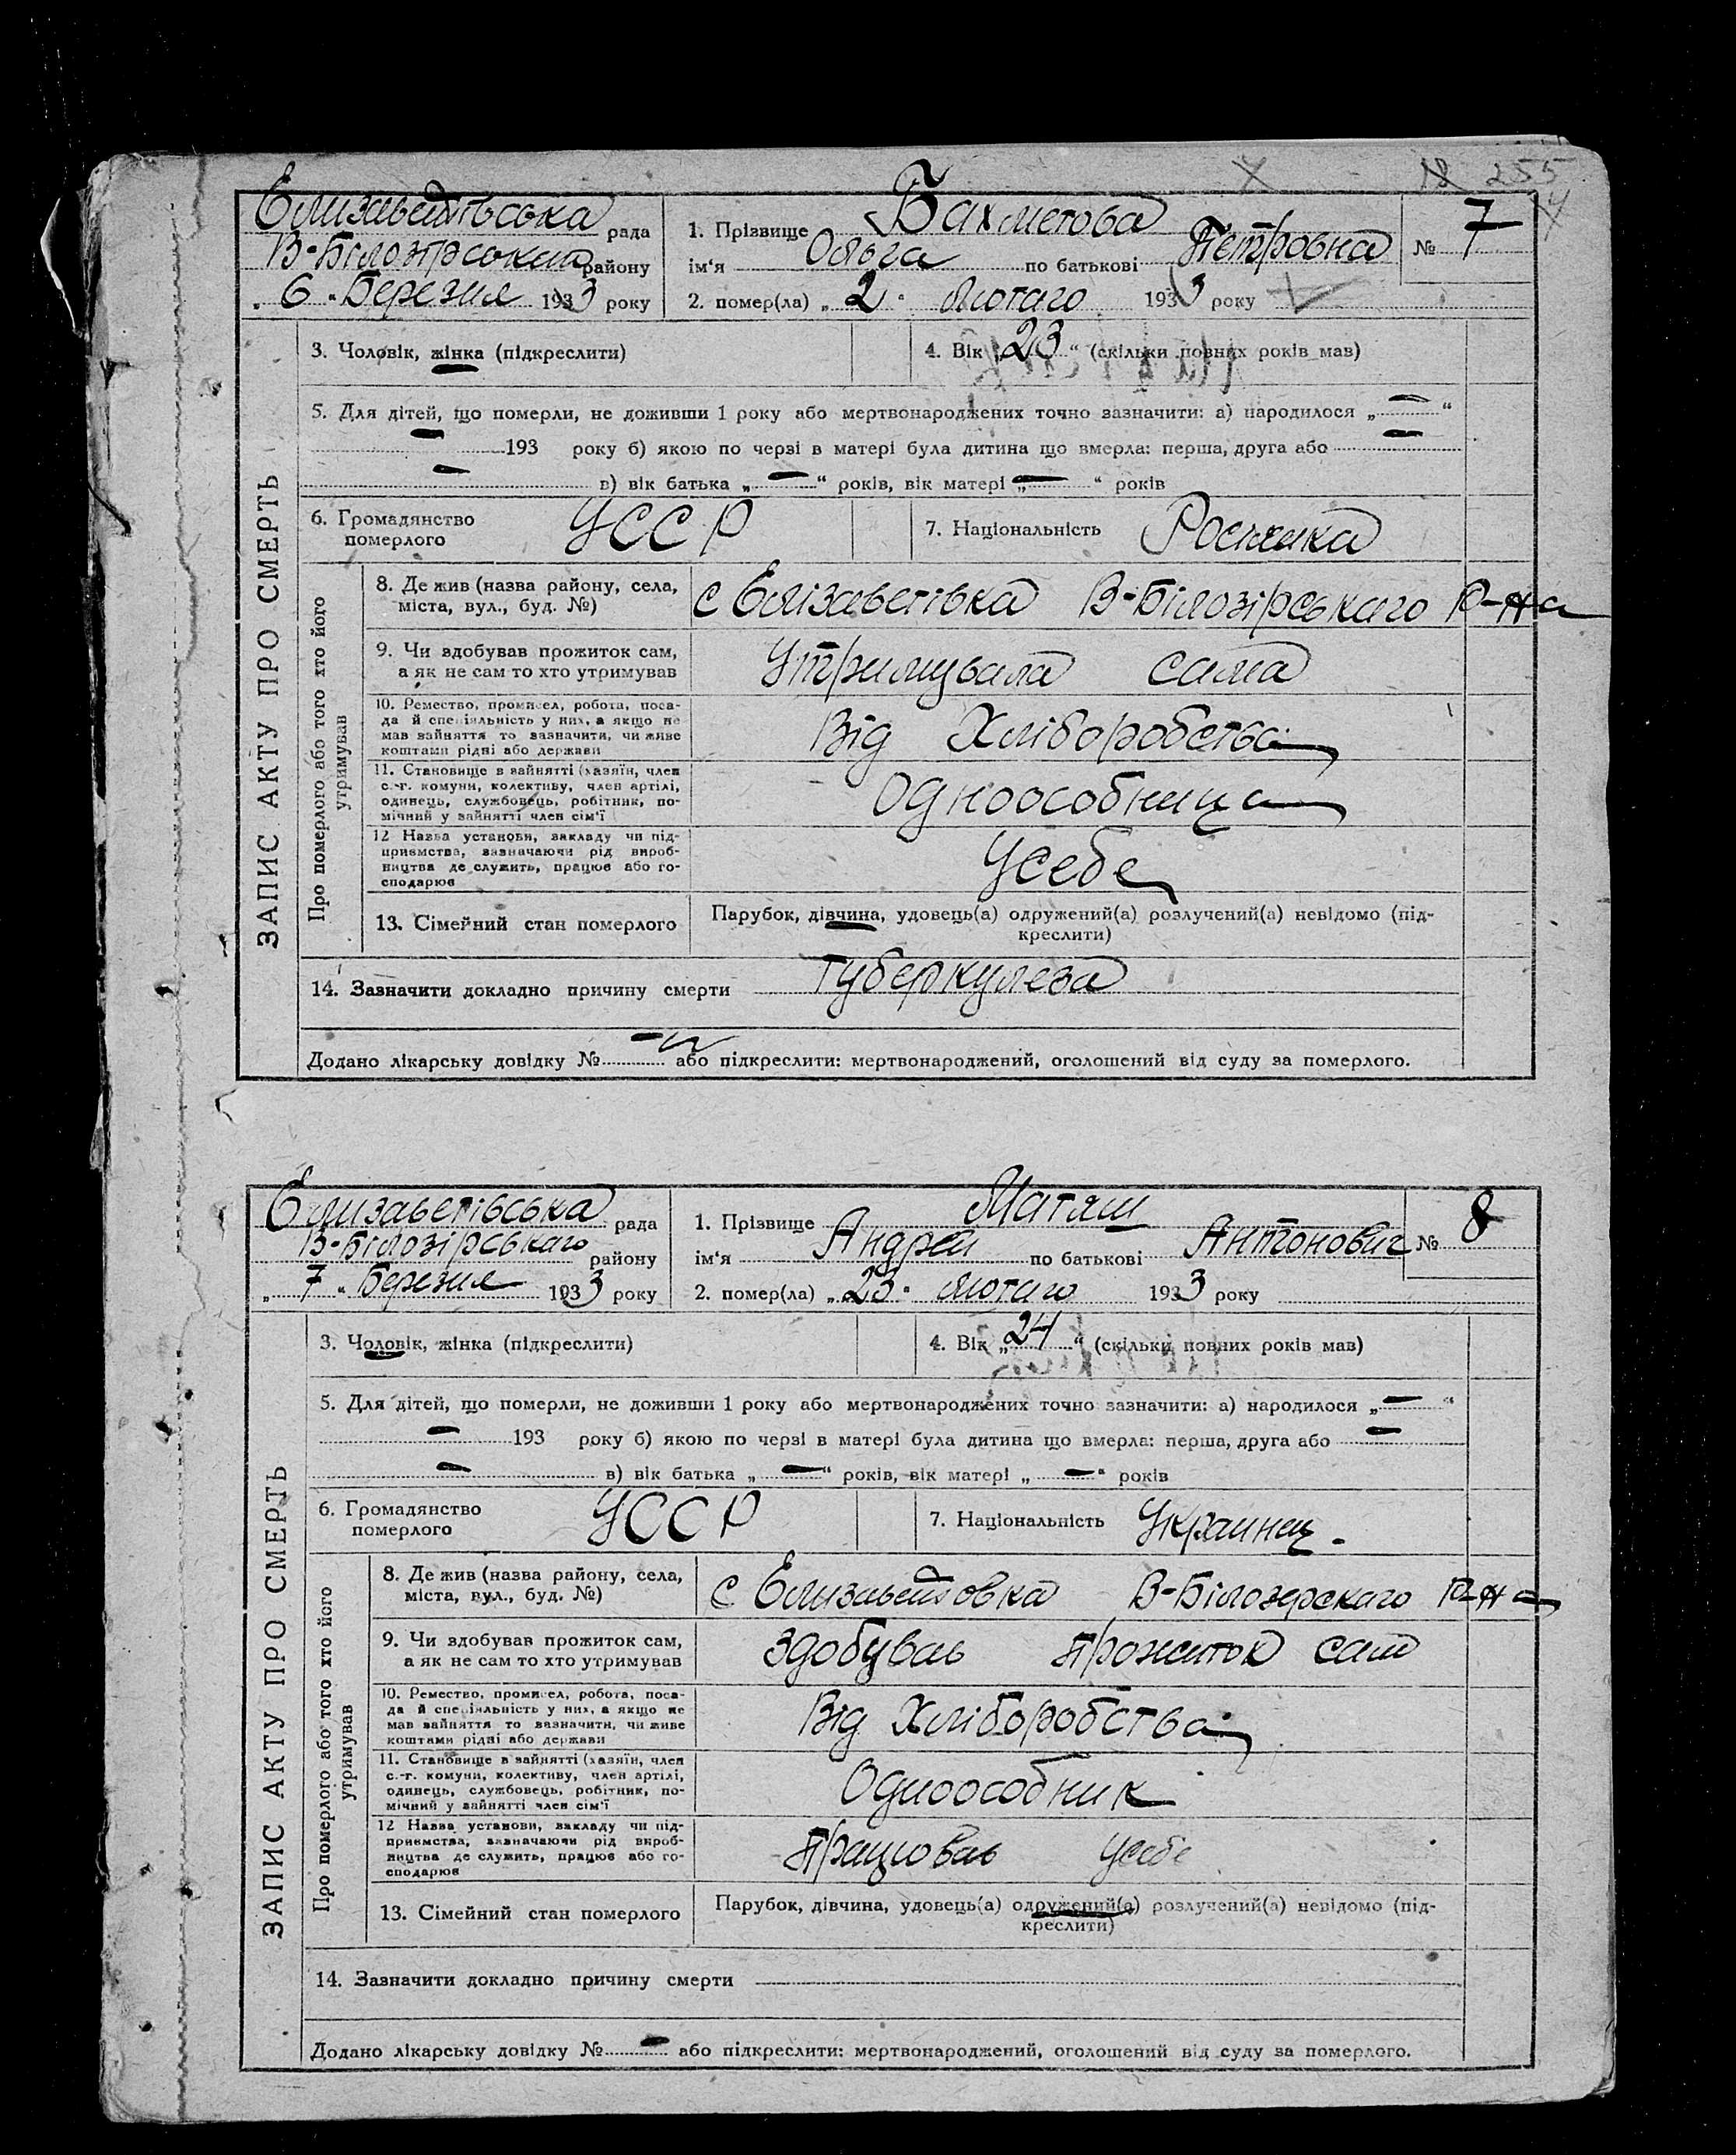 18 255
Елизаветівська рада
В-Білозірський району
„ 6 “ Березня 1933 року
1. Прізвище Бахметова
ім‘я Ольга по батькові Петровна
№ 7
2. помер(ла) „ 2 “ Лютаго 1933 року
ЗАПИС АКТУ ПРО СМЕРТЬ
3. Чоловік, жінка (підкреслити)
4. Вік „ 23 “ (скільки повних років мав)
5. Для дітей, що померли, не доживши 1 року або мертвонароджених точно зазначити: а) народилося „ — “
— 193 року б) якою по черзі в матері була дитина що вмерла: перша, друга або —
— в) вік батька „ — “ років, вік матері „ — “ років
6. Громадянство
померлого
УССР
7. Національність Росіянка
Про померлого або того хто його
утримував
8. Де жив (назва району, села,
міста, вул., буд. №)
с Елізаветівка В-Білозірського р-на
9. Чи здобував прожиток сам,
а як не сам то хто утримував
Утримувала сама
10. Ремество, промисел, робота, поса-
да й спеціяльність у них, а якщо не
мав зайняття то зазначити, чи живе
коштами рідні або держави
Від Хліборобства
11. Становище в зайнятті (хазяїн, член
с.-г. комуни, колективу, член артілі,
одинець, службовець, робітник, по-
мічний у зайнятті член сім‘ї
Одноособниця
12 Назва установи, закладу чи під-
приємства, зазначаючи рід вироб-
ництва де служить, працює або го-
сподарює
Усебе
13. Сімейний стан померлого
Парубок, дівчина, удовець(а) одружений(а) розлучений(а) невідомо (під-
креслити)
14. Зазначити докладно причину смерти Туберкулеза
Додано лікарську довідку № — або підкреслити: мертвонароджений, оголошений від суду за померлого.
Елизаветівська рада
В-Білозірського району
„ 7 “ Березня 1933 року
1. Прізвище Матяш
ім‘я Андрей по батькові Антонович
№ 8
2. помер(ла) „ 23 “ Лютаго 1933 року
ЗАПИС АКТУ ПРО СМЕРТЬ
3. Чоловік, жінка (підкреслити)
4. Вік „ 24 “ (скільки повних років мав)
5. Для дітей, що померли, не доживши 1 року або мертвонароджених точно зазначити: а) народилося „ — “
— 193 року б) якою по черзі в матері була дитина що вмерла: перша, друга або —
— в) вік батька „ — “ років, вік матері „ — “ років
6. Громадянство
померлого
УССР
7. Національність Украинец.
Про померлого або того хто його
утримував
8. Де жив (назва району, села,
міста, вул., буд. №)
с Елизаветовка В-Білозерскаго р-на
9. Чи здобував прожиток сам,
а як не сам то хто утримував
Здобував прожиток сам
10. Ремество, промисел, робота, поса-
да й спеціяльність у них, а якщо не
мав зайняття то зазначити, чи живе
коштами рідні або держави
Від Хліборобства
11. Становище в зайнятті (хазяїн, член
с.-г. комуни, колективу, член артілі,
одинець, службовець, робітник, по-
мічний у зайнятті член сім‘ї
Одноособник
12 Назва установи, закладу чи під-
приємства, зазначаючи рід вироб-
ництва де служить, працює або го-
сподарює
Працював усебе
13. Сімейний стан померлого
Парубок, дівчина, удовець(а) одружений(а) розлучений(а) невідомо (під-
креслити)
14. Зазначити докладно причину смерти
Додано лікарську довідку № — або підкреслити: мертвонароджений, оголошений від суду за померлого.